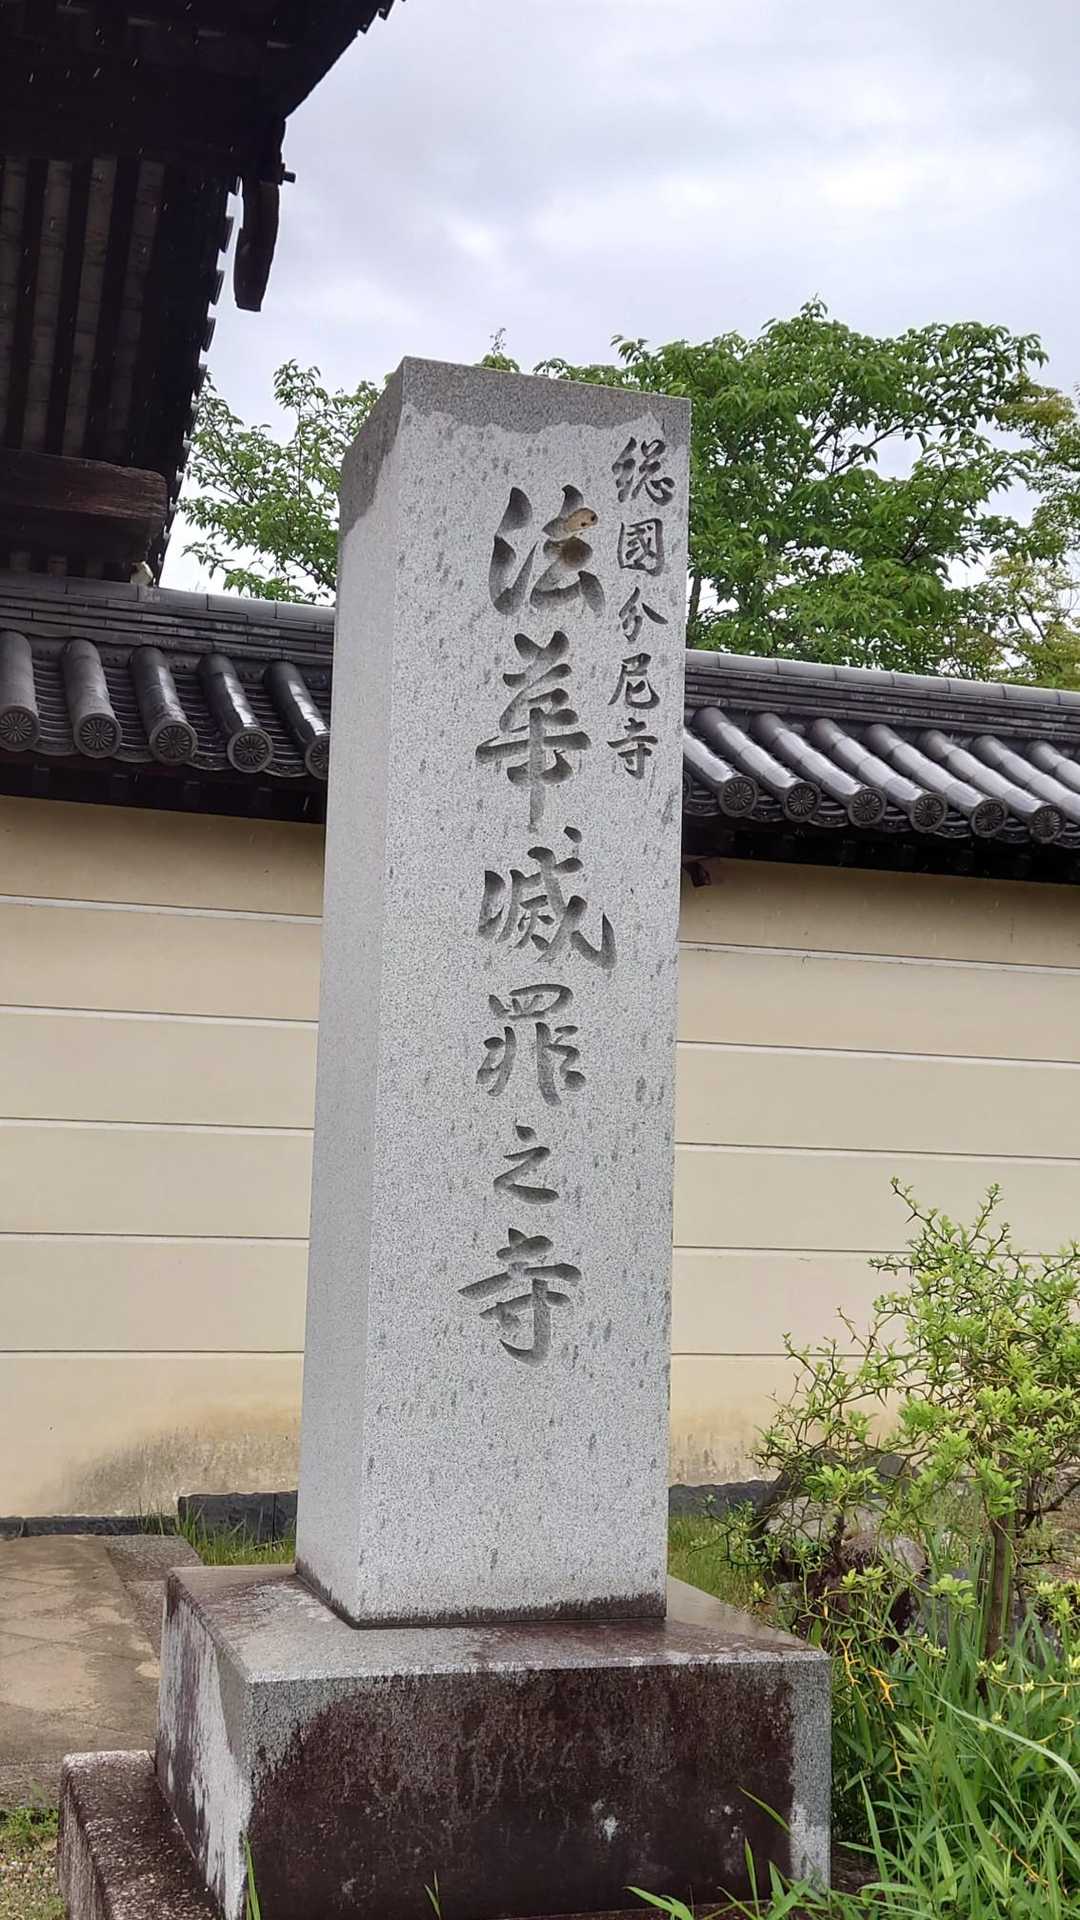 総國分尼寺
法華滅罪之寺